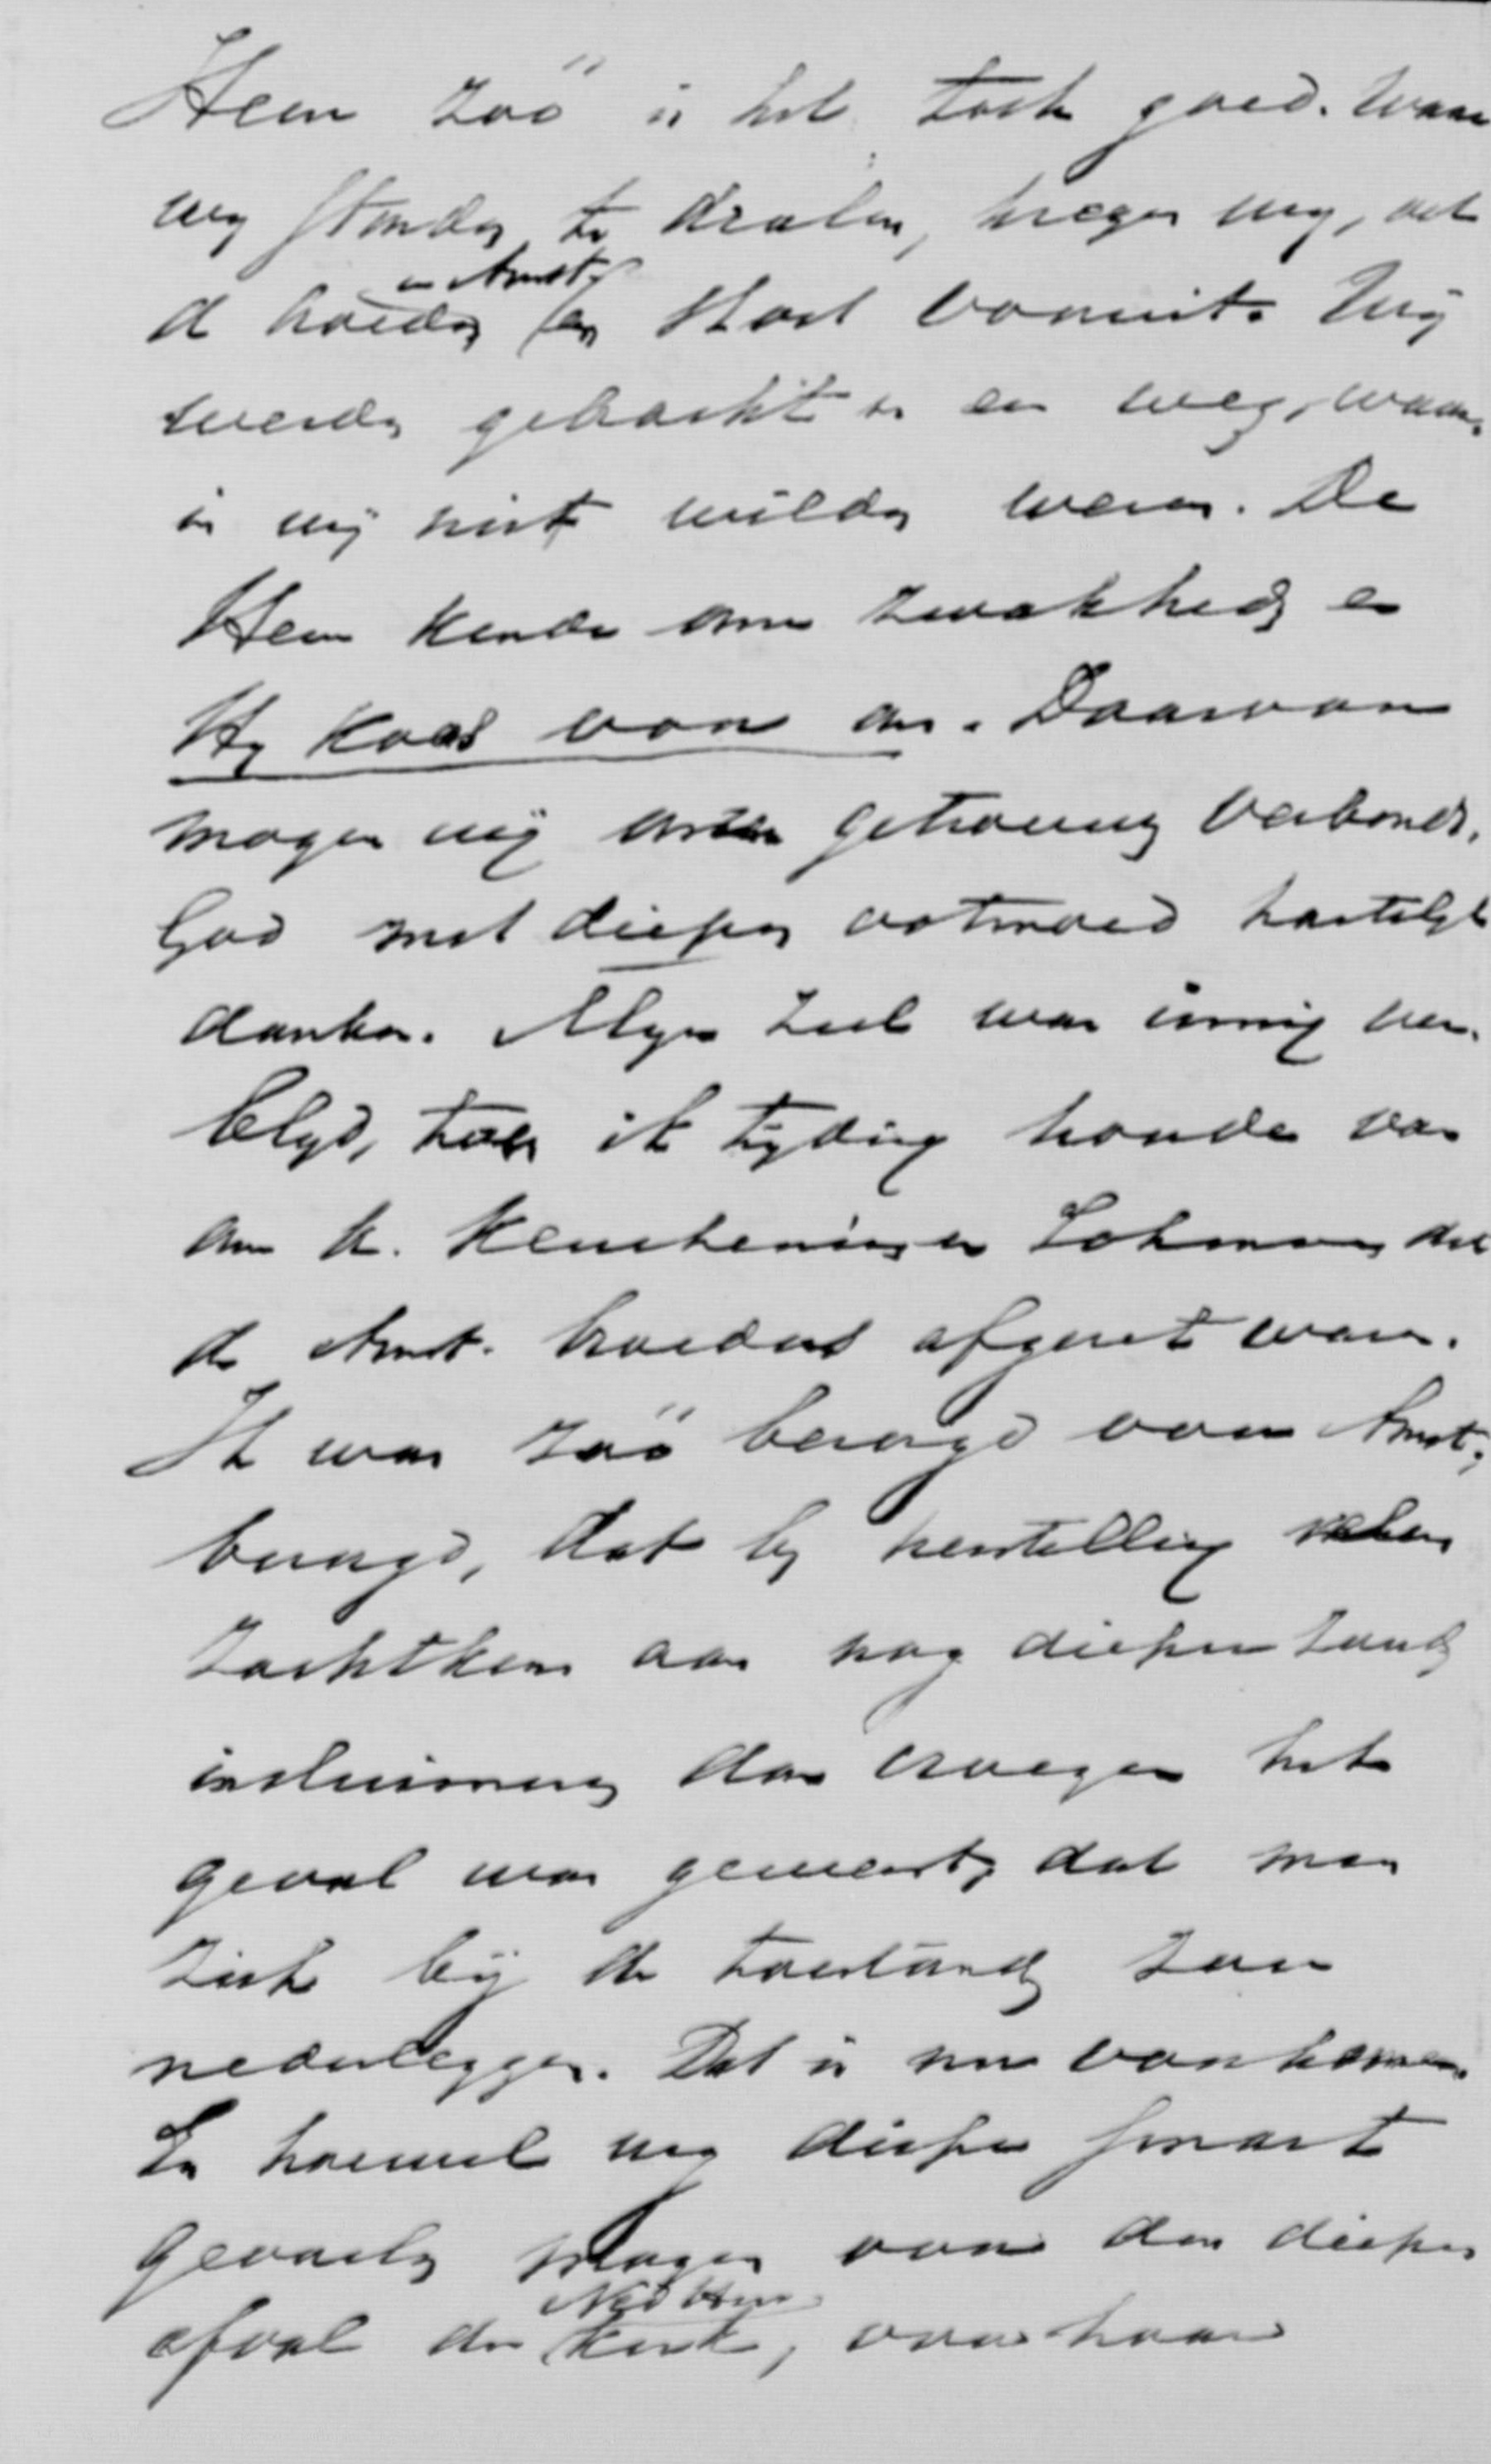 Heer zoó is het toch goed. Waar
wij stonden te dralen, kregen wij, met
de broeders in Amst. een stoot vooruit. Wij
werden gebracht in een weg, waar-
in wij niet wilden wezen. De
Heer kende onze zwakheid en
Hij koos voor ons. Daarvoor
mogen wij onzen getrouwen Verbonds-
God met diepen ootmoed hartelijk
danken. Mijn ziel was innig ver-
blijd, toen ik tijding hoorde van
onze br. Keuchenius en Lohman, dat
de Amst. broeders afgezet waren.
Ik was zoó bezorgd voor Amst.,
bezorgd, dat bij herstelling
zachtkens aan nog dieper zoude
insluimering dan vroeger het
geval was geweest, dat men
zich bij de toestand zou
nederleggen. Dat is nu voorkomen.
En hoewel wij diepe smart
gevoelen mogen over den diepen
afval der Ned Herv kerk, voor haar